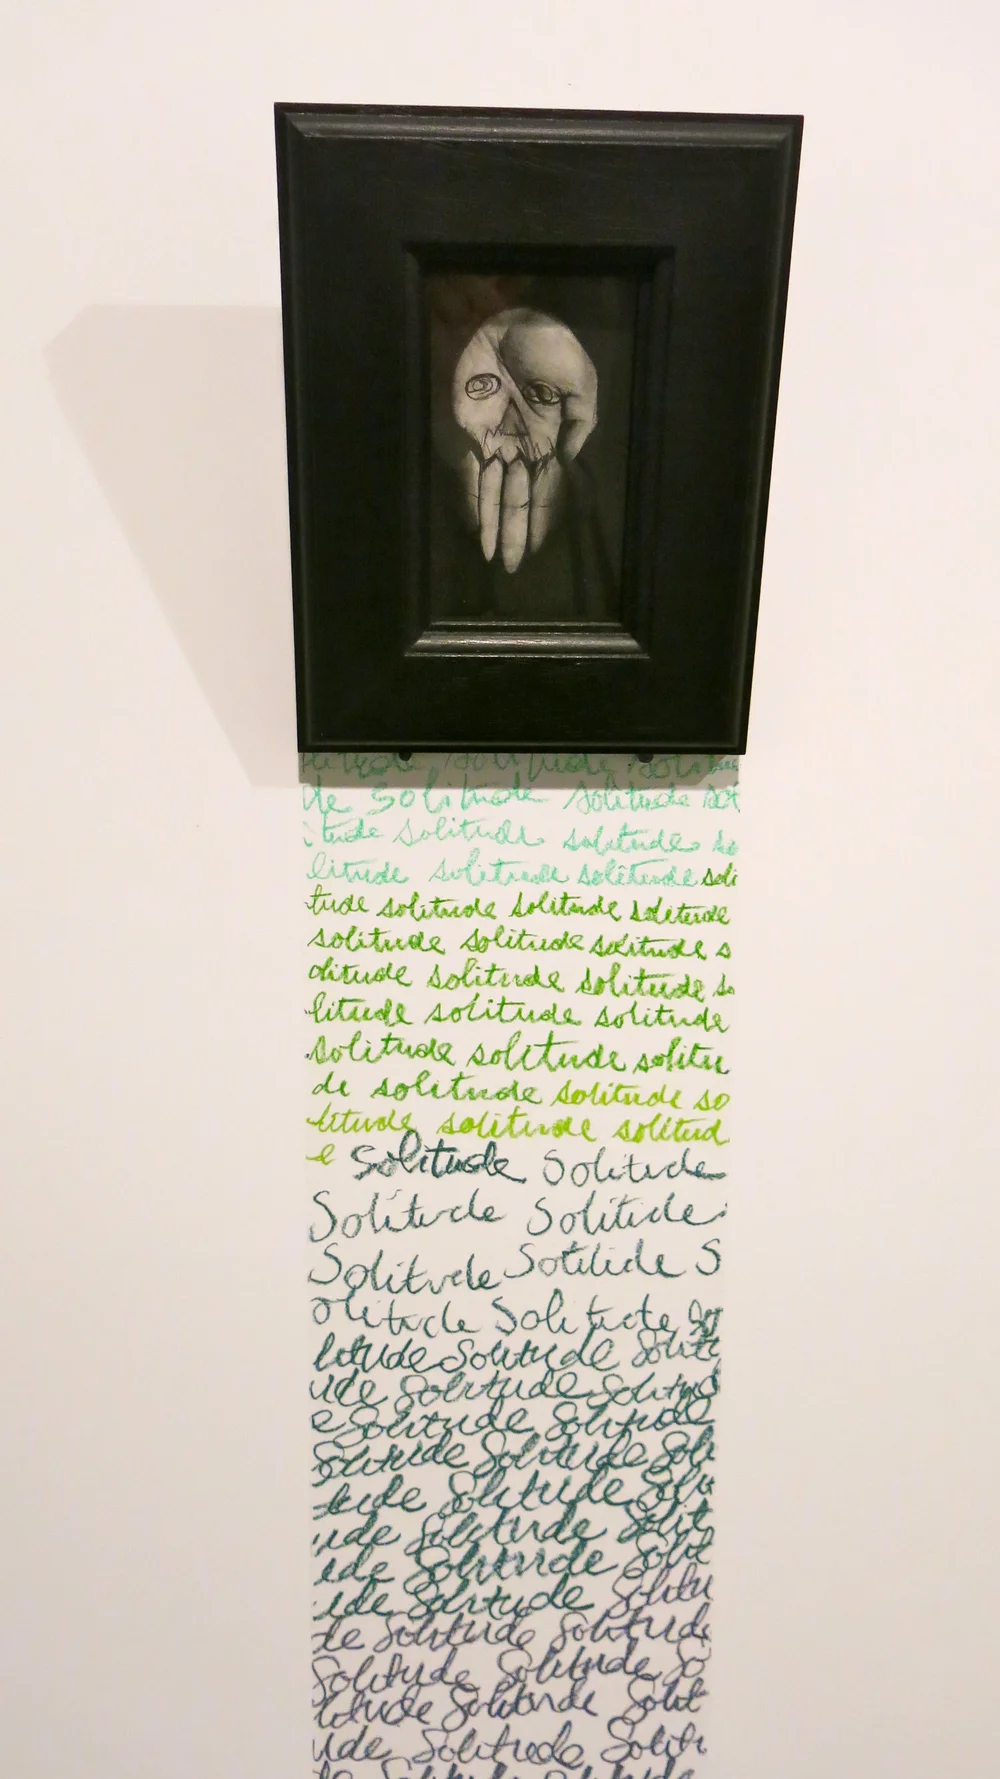 solitude solitude
de solitude solitude sol
itude solitude solitude so
litude solitude solitude soli
tude solitude solitude solitude
solitude solitude solitude s
olitude solitude solitude so
litude solitude solitude
solitude solitude solitu
de solitude solitude so
litude solitude solitud
e solitude Solitude
Solitude Solitude
Solitude Solitude S
olitude Solitude
litude Solitude Solit
ude Solitude Solitud
e Solitude Solitude
Solitude Solitude Soli
tude Solitude Solit
ude Solitude Solit
ude Solitude Solit
ude Solitude Solitu
de Solitude Solitude
Solitude Solitude So
litude Solitude Solit
ude Solitude Soliti